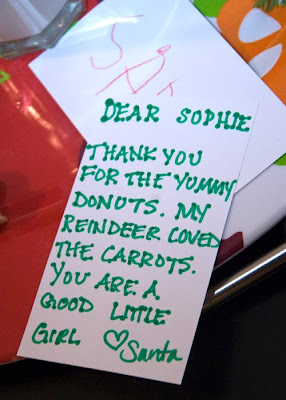 DEAR SOPHIE
THANK YOU
FOR THE YUMMY
DONUTS. MY
REINDEER LOVED
THE CARROTS.
YOU ARE A
GOOD LITTLE
GIRL ♡Santa